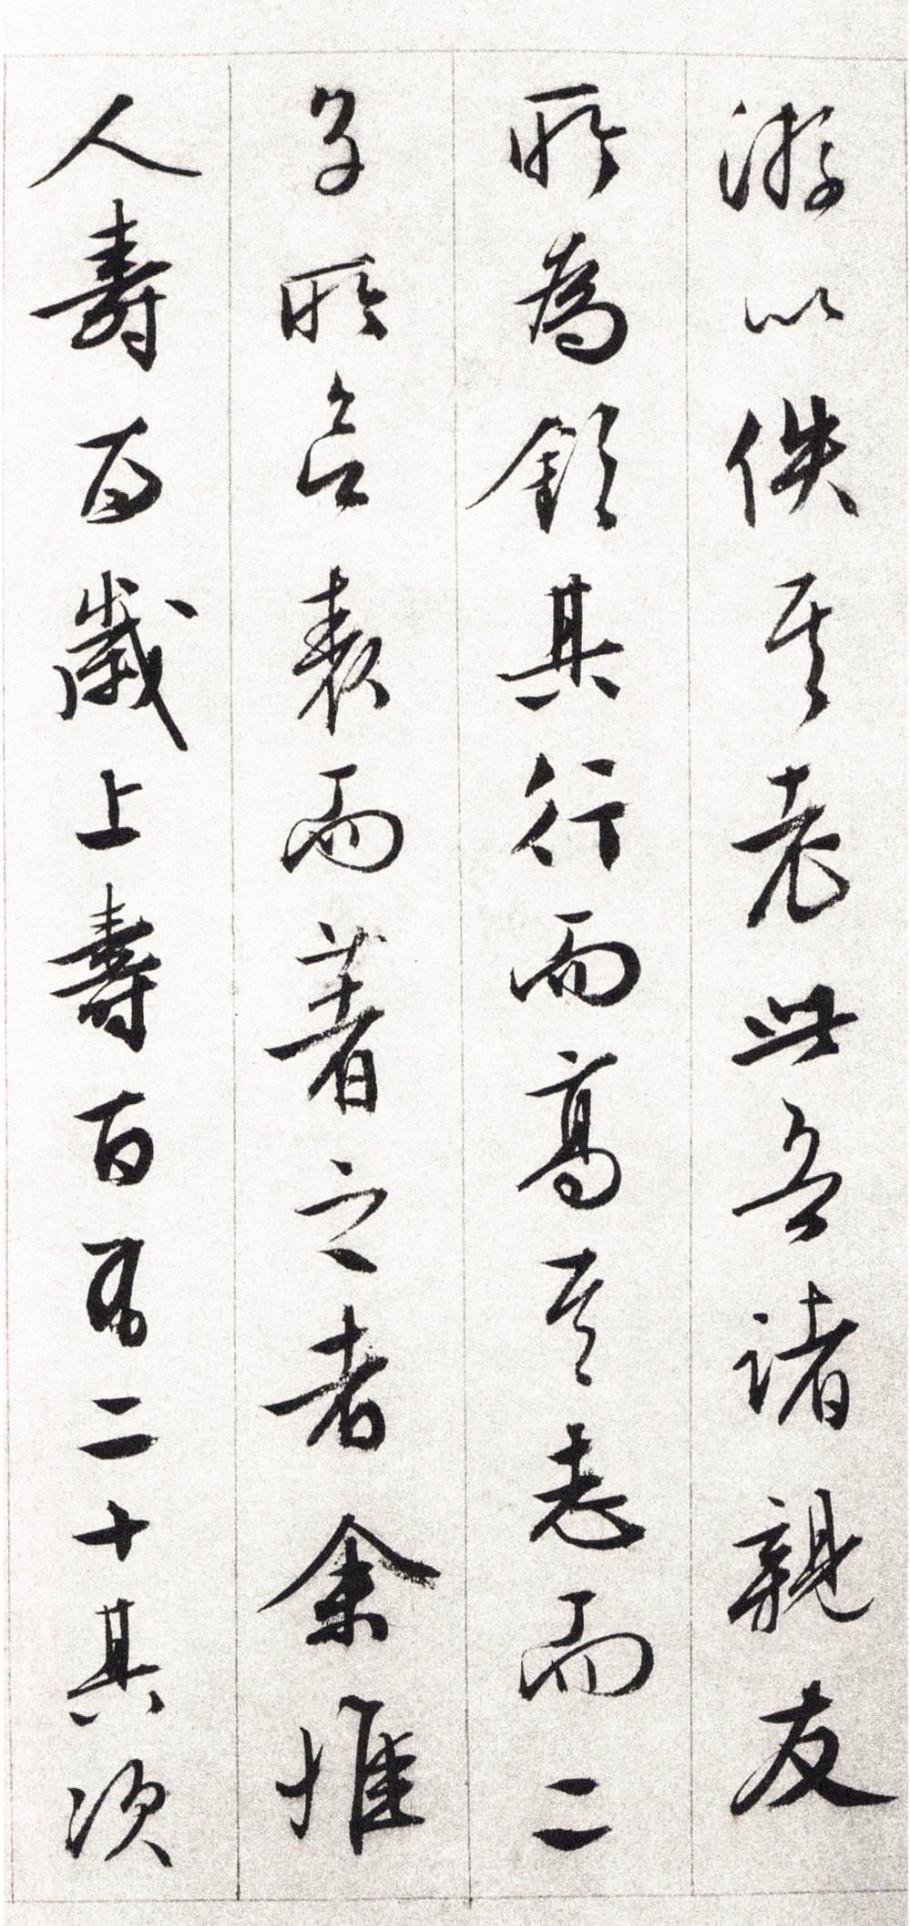 游以佚其老此吾諸親友
所為領其行而高其志而二
子所以表而著之者余惟
人壽百歲上壽百有二十其次